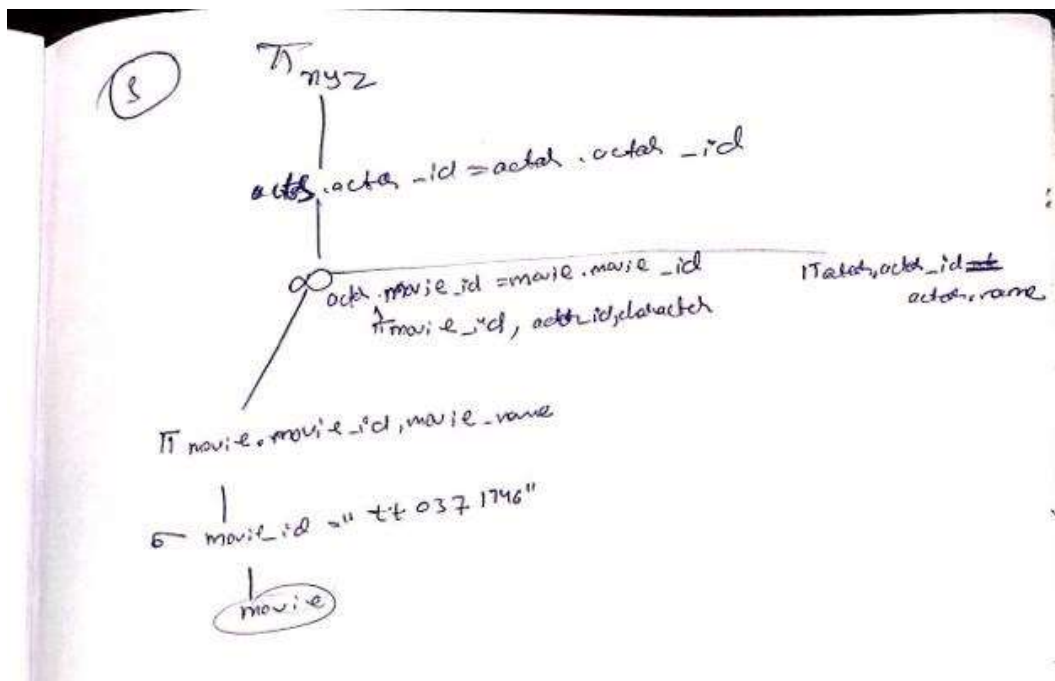 π xyz
actor.actor_id = actor.actor_id
actor.movie_id = movie.movie_id
π movie_id, actor_id, character
π actor.actor_id
actor.name
π movie.movie_id, movie_name
σ movie_id = "tt0371746"
movie